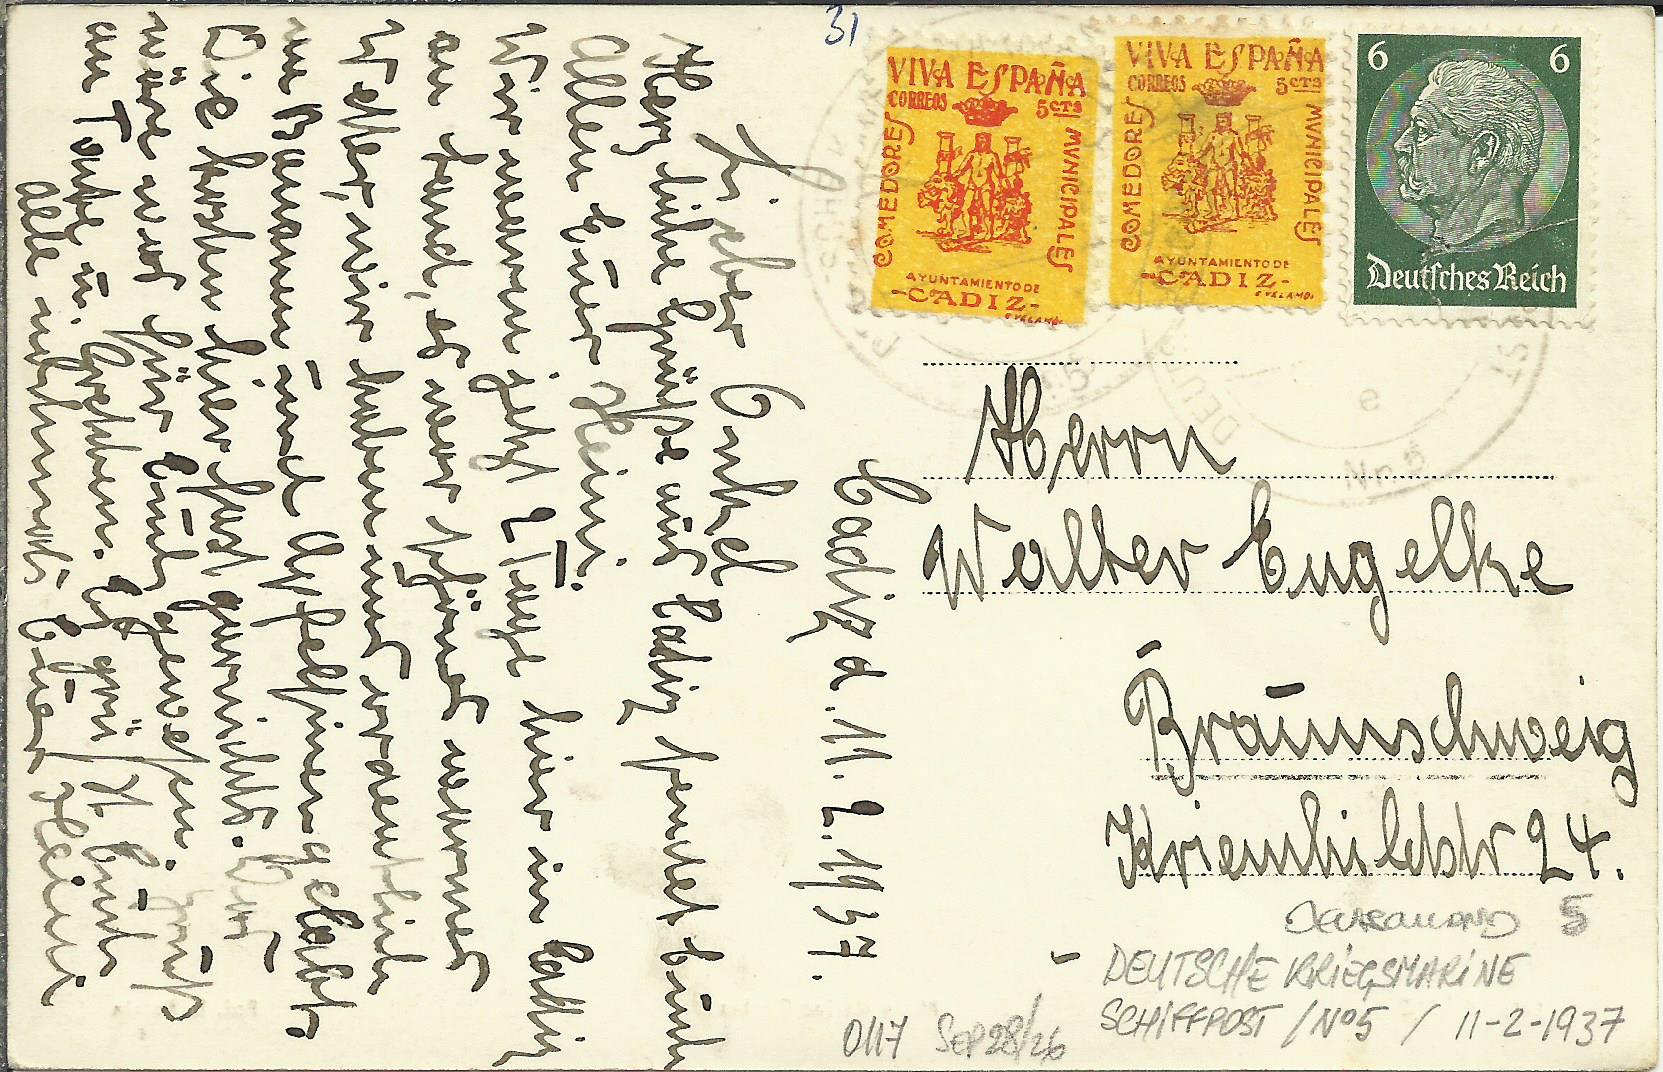 31
VIVA ESPAÑA
CORREOS 5 CTS
COMEDORES MUNICIPALES
AYUNTAMIENTO DE
-CADIZ-
VIVA ESPAÑA
CORREOS 5 CTS
COMEDORES MUNICIPALES
AYUNTAMIENTO DE
-CADIZ-
6 6
Deutsches Reich
e
Nr 5
Cadiz d. 11. 2. 1937.
Lieber Onkel
Herzliche Grüße aus Cadiz sendet Euch
Allen Euer Heini.
Wir waren jetzt 2 Tage hier in Cadiz
an Land, es war schönes warmes
Wetter, wir haben uns ordentlich
an Bananen und Apfelsinen gelabt.
Die kosten hier fast garnichts. Das
wäre was für Euch gewesen. Gruß
an Tante u. Gretchen. Es grüßt Euch
alle nochmals Euer Heini
Herrn
Walter Engelke
Braunschweig
Kriemhildstr 24.
5
DEUTSCHE KRIEGSMARINE
SCHIFFPOST / Nº5 / 11-2-1937
0117 SEP 28/26